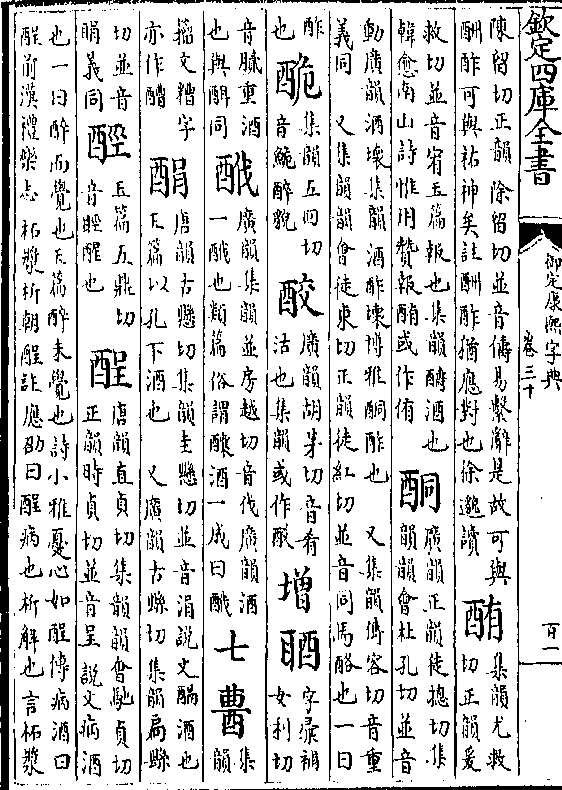 欽定四庫全書
御定康熙字典
卷三十
百一
陳留切正韻除留切並音儔易繫辭是故可與
酬酢可與祐神矣註酬酢猶應對也徐邈讀
酭
集韻尤救
切正韻爰
救切並音宥玉篇報也集韻醻酒也
韓愈南山詩惟用贊報酭或作侑
酮
廣韻正韻徒摠切集
韻韻會杜孔切並音
動廣韻酒壞集韻酒酢壞博雅酮酢也 又集韻傳容切音重
義同 又集韻韻會徒東切正韻徒紅切並音同馬酪也一曰
酢
也
集韻五回切
音鮠醉貌
廣韻胡茅切音肴
沽也集韻或作
增
字彙補
女利切
音膩重酒
也與同
廣韻集韻並房越切音伐廣韻酒
也類篇俗謂釀酒一成曰
七
集
韻
籀文糟字
亦作醩
唐韻古懸切集韻圭懸切並音涓說文酒也
玉篇以孔下酒也 又廣韻古縣切集韻扃縣
切並音
睊義同
玉篇五鼎切
音脛醒也
酲
唐韻直貞切集韻韻會馳貞切
正韻時貞切並音呈說文病酒
也一曰醉而覺也玉篇醉未覺也詩小雅憂心如酲傳病酒曰
酲前漢禮樂志柘漿析朝酲註應劭曰酲病也析解也言柘漿